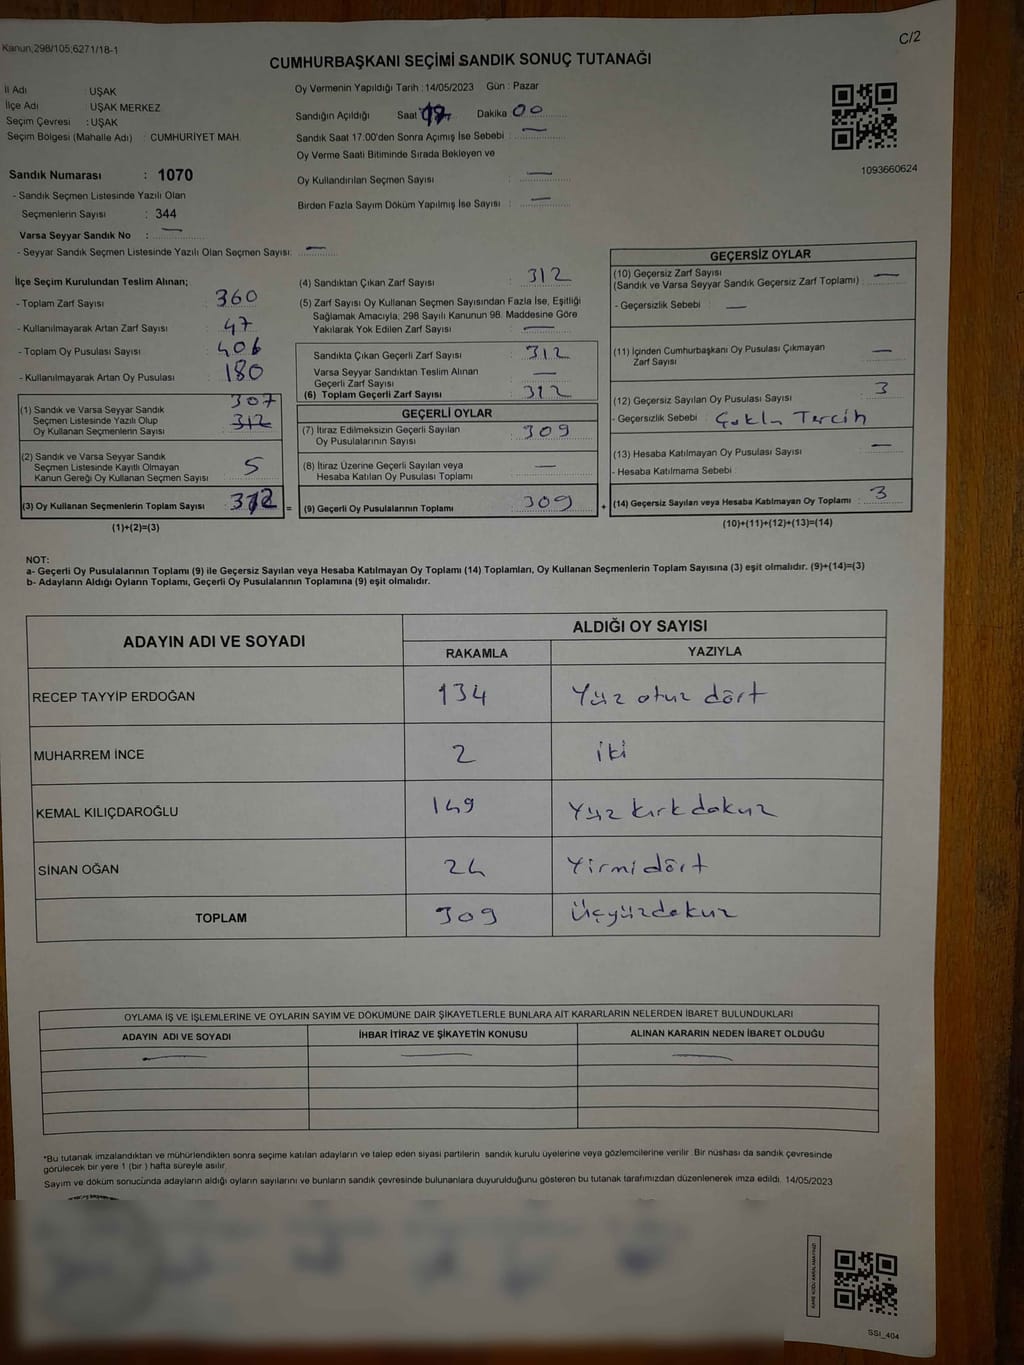 Kanun;298/105;6271/18-1
C/2
CUMHURBAŞKANI SEÇİMİ SANDIK SONUÇ TUTANAĞI
İl Adı : UŞAK
İlçe Adı : UŞAK MERKEZ
Seçim Çevresi : UŞAK
Seçim Bölgesi (Mahalle Adı) : CUMHURİYET MAH.
Sandık Numarası : 1070
- Sandık Seçmen Listesinde Yazılı Olan
Seçmenlerin Sayısı : 344
Varsa Seyyar Sandık No : —
- Seyyar Sandık Seçmen Listesinde Yazılı Olan Seçmen Sayısı: —
Oy Vermenin Yapıldığı Tarih : 14/05/2023 Gün : Pazar
Sandığın Açıldığı Saat Dakika 00
Sandık Saat 17:00'den Sonra Açımış İse Sebebi : —
Oy Verme Saati Bitiminde Sırada Bekleyen ve
Oy Kullandırılan Seçmen Sayısı : —
Birden Fazla Sayım Döküm Yapılmış İse Sayısı : —
1093660624
İlçe Seçim Kurulundan Teslim Alınan;
- Toplam Zarf Sayısı : 360
- Kullanılmayarak Artan Zarf Sayısı : 47
- Toplam Oy Pusulası Sayısı : 406
- Kullanılmayarak Artan Oy Pusulası : 180
307
(1) Sandık ve Varsa Seyyar Sandık
Seçmen Listesinde Yazılı Olup
Oy Kullanan Seçmenlerin Sayısı : 312
(2) Sandık ve Varsa Seyyar Sandık
Seçmen Listesinde Kayıtlı Olmayan
Kanun Gereği Oy Kullanan Seçmen Sayısı : 5
(3) Oy Kullanan Seçmenlerin Toplam Sayısı : 312 =
(1)+(2)=(3)
(4) Sandıktan Çıkan Zarf Sayısı : 312
(5) Zarf Sayısı Oy Kullanan Seçmen Sayısından Fazla İse, Eşitliği
Sağlamak Amacıyla, 298 Sayılı Kanunun 98. Maddesine Göre
Yakılarak Yok Edilen Zarf Sayısı : —
Sandıkta Çıkan Geçerli Zarf Sayısı : 312
Varsa Seyyar Sandıktan Teslim Alınan
Geçerli Zarf Sayısı : —
(6) Toplam Geçerli Zarf Sayısı : 312
GEÇERLİ OYLAR
(7) İtiraz Edilmeksizin Geçerli Sayılan
Oy Pusulalarının Sayısı : 309
(8) İtiraz Üzerine Geçerli Sayılan veya
Hesaba Katılan Oy Pusulası Toplamı : —
(9) Geçerli Oy Pusulalarının Toplamı : 309 +
GEÇERSİZ OYLAR
(10) Geçersiz Zarf Sayısı
(Sandık ve Varsa Seyyar Sandık Geçersiz Zarf Toplamı) : —
- Geçersizlik Sebebi : —
(11) İçinden Cumhurbaşkanı Oy Pusulası Çıkmayan
Zarf Sayısı : —
(12) Geçersiz Sayılan Oy Pusulası Sayısı : 3
- Geçersizlik Sebebi : Çoklu Tercih
(13) Hesaba Katılmayan Oy Pusulası Sayısı : —
- Hesaba Katılmama Sebebi :
(14) Geçersiz Sayılan veya Hesaba Katılmayan Oy Toplamı : 3
(10)+(11)+(12)+(13)=(14)
NOT:
a- Geçerli Oy Pusulalarının Toplamı (9) ile Geçersiz Sayılan veya Hesaba Katılmayan Oy Toplamı (14) Toplamları, Oy Kullanan Seçmenlerin Toplam Sayısına (3) eşit olmalıdır. (9)+(14)=(3)
b- Adayların Aldığı Oyların Toplamı, Geçerli Oy Pusulalarının Toplamına (9) eşit olmalıdır.
ADAYIN ADI VE SOYADI
ALDIĞI OY SAYISI
RAKAMLA YAZIYLA
RECEP TAYYİP ERDOĞAN 134 Yüz otuz dört
MUHARREM İNCE 2 iki
KEMAL KILIÇDAROĞLU 149 Yüz kırk dokuz
SİNAN OĞAN 24 Yirmi dört
TOPLAM 309 Üçyüzdokuz
OYLAMA İŞ VE İŞLEMLERİNE VE OYLARIN SAYIM VE DÖKÜMÜNE DAİR ŞİKAYETLERLE BUNLARA AİT KARARLARIN NELERDEN İBARET BULUNDUKLARI
ADAYIN ADI VE SOYADI İHBAR İTİRAZ VE ŞİKAYETİN KONUSU ALINAN KARARIN NEDEN İBARET OLDUĞU
— — —
*Bu tutanak imzalandıktan ve mühürlendikten sonra seçime katılan adayların ve talep eden siyasi partilerin sandık kurulu üyelerine veya gözlemcilerine verilir. Bir nüshası da sandık çevresinde
görülecek bir yere 1 (bir) hafta süreyle asılır.
Sayım ve döküm sonucunda adayların aldığı oyların sayılarını ve bunların sandık çevresinde bulunanlara duyurulduğunu gösteren bu tutanak tarafımızdan düzenlenerek imza edildi. 14/05/2023
SSI_404